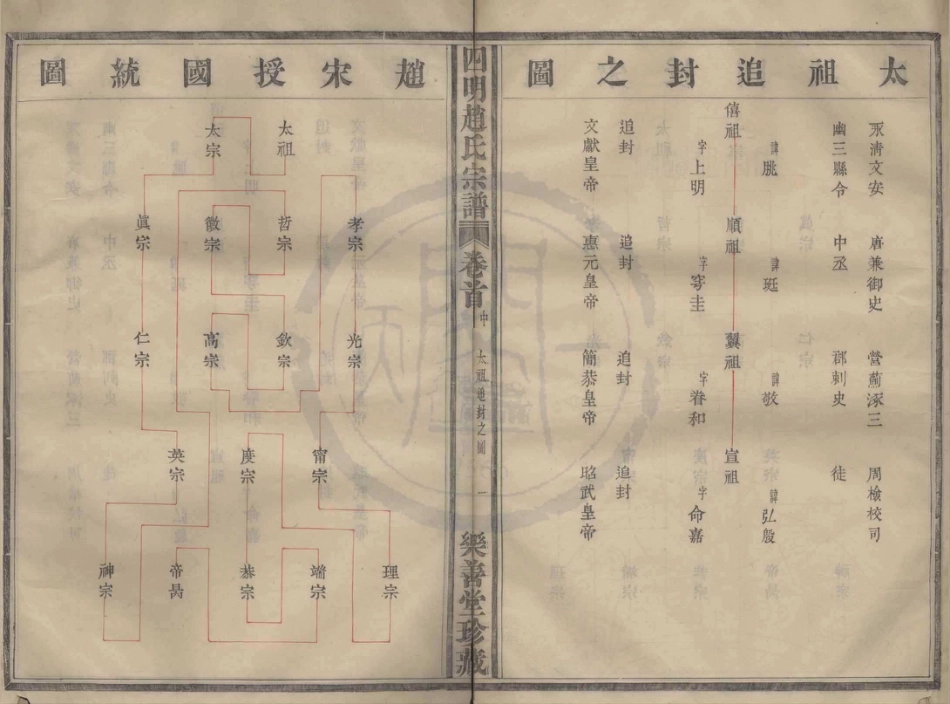 太祖追封之圖
永清文安 唐兼御史 營薊涿三 周檢校司
幽三縣令 中丞 郡刺史 徒
諱朓 諱珽 諱敬 諱弘殷
僖祖 順祖 翼祖 宣祖
字上明 字寄圭 字眷和 字命嘉
追封 追封 追封 追封
文獻皇帝 惠元皇帝 簡恭皇帝 昭武皇帝
四明趙氏宗譜 卷首 中 太祖追封之圖 一 樂善堂珍藏
趙宋授國統圖
理宗
孝宗 光宗
甯宗 端宗
太祖 哲宗 欽宗
度宗 恭宗
太宗 徽宗 高宗
英宗 帝昺
眞宗 仁宗
神宗